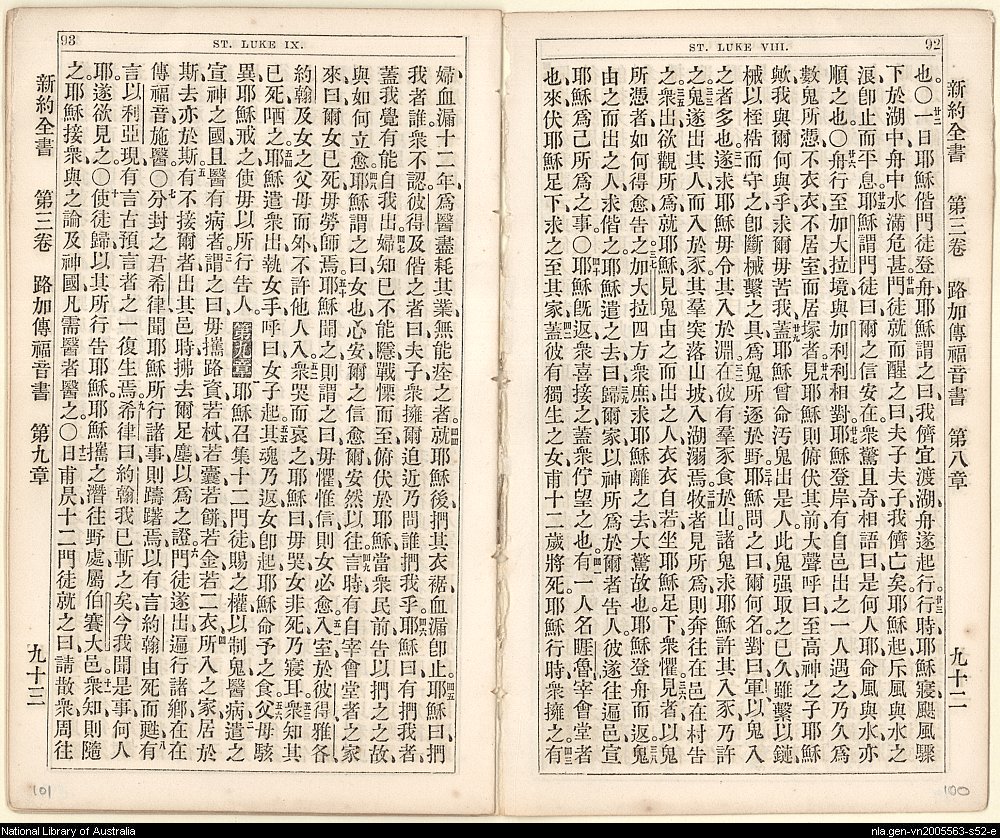 92
ST. LUKE VIII.
新約全書 第三卷 路加傳福音書 第八章 九十二
也。〇一日耶穌偕門徒登舟、耶穌謂之曰、我儕宜渡湖、舟遂起行、行時、耶穌寢、颶風驟
下於湖中、舟中水滿危甚、門徒就而醒之曰、夫子夫子、我儕亡矣、耶穌起、斥風與水之
浪、卽止而平息、耶穌謂門徒曰、爾之信安在、衆驚且奇、相語曰、是何人耶、命風與水、亦
順之也。〇舟行至加大拉境、與加利利相對、耶穌登岸、有自邑出之一人遇之、乃久爲
數鬼所憑、不衣衣、不居室、而居塚者、見耶穌、則俯伏其前、大聲呼曰、至高神之子耶穌
歟、我與爾何與乎、求爾毋苦我、蓋耶穌曾命汚鬼出是人、此鬼强取之已久、雖繫以鏈
械、以桎梏而守之、卽斷械繫之具、爲鬼所逐於野、耶穌問之曰、爾何名、對曰、軍、以鬼入
之者多也、遂求耶穌毋令其入於淵、在彼有羣豕食於山、諸鬼求耶穌許其入豕、乃許
之、鬼遂出其人、而入於豕、其羣突落山坡入湖溺焉、牧者見所爲、則奔往在邑在村告
之、衆出欲觀所爲、就耶穌、見鬼由之而出之人、衣衣自若、坐耶穌足下、衆懼、見者、以鬼
所憑者如何得愈告之、加大拉四方衆庶、求耶穌離之去、大驚故也、耶穌登舟而返、鬼
由之而出之人、求偕之、耶穌遣之去曰、歸爾家、以神所爲於爾者告人、彼遂往遍邑宣
耶穌爲己所爲之事。〇耶穌旣返、衆喜接之、蓋衆佇望之也、有一人名睚魯、宰會堂者
也、來伏耶穌足下、求之至其家、蓋彼有獨生之女、甫十二歲將死、耶穌行時、衆擁之、有
100
93
ST. LUKE IX.
婦血漏十二年、爲醫盡耗其業、無能痊之者、就耶穌後、捫其衣裾、血漏卽止、耶穌曰、捫
我者誰、衆不認、彼得及偕之者曰、夫子、衆擁爾迫近、乃問誰捫我乎、耶穌曰、有捫我者、
蓋我覺有能自我出、婦知已不能隱、戰慄而至、俯伏於耶穌、當衆民前、告以捫之之故、
與如何立愈、耶穌謂之曰、女也、心安、爾之信愈爾、安然以往、言時、有自宰會堂者之家
來曰、爾女已死、毋勞師焉、耶穌聞之、則謂之曰、毋懼、惟信、則女必愈、入室、於彼得雅各
約翰及女之父母而外、不許他人入、衆哭而哀之、耶穌曰、毋哭、女非死、乃寢耳、衆知其
已死哂之、耶穌遣衆出、執女手、呼曰、女子起、其魂乃返、女卽起、耶穌命予之食、父母駭
異、耶穌戒之使毋以所行告人。第九章耶穌召集十二門徒、賜之權、以制鬼醫病、遣之
宣神之國、且醫有病者、謂之曰、毋攜路資、若杖、若囊、若餅、若金、若二衣、所入之家居於
斯、去亦於斯、有不接爾者、出其邑時、拂去爾足塵以爲之證、門徒遂出、遍行諸鄕、在在
傳福音施醫。〇分封之君希律、聞耶穌所行諸事則躊躇焉、以有言約翰由死而甦、有
言以利亞現、有言古預言者之一復生焉、希律曰、約翰我已斬之矣、今我聞是事、何人
耶、遂欲見之。〇使徒歸、以其所行告耶穌、耶穌攜之潛往野處、屬伯賽大邑、衆知、則隨
之、耶穌接衆、與之論及神國、凡需醫者醫之。〇日甫昃、十二門徒就之曰、請散衆、周往
新約全書 第三卷 路加傳福音書 第九章 九十三
101
National Library of Australia
nla.gen-vn2005563-s52-e